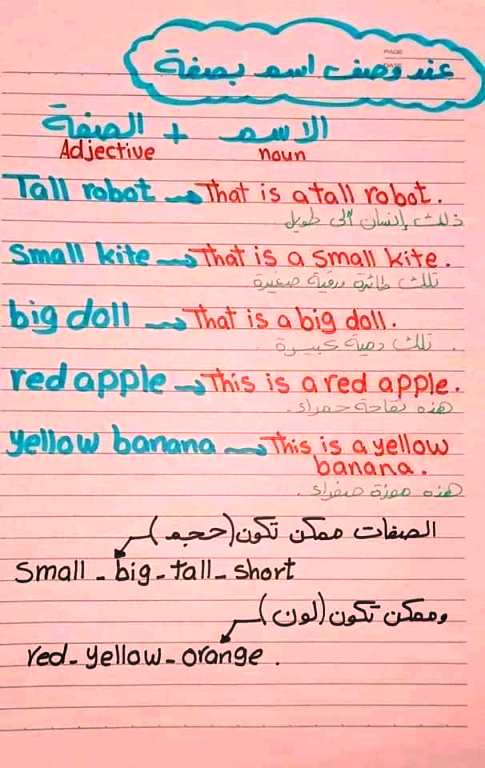 PAGE
DATE
عند وصف اسم بصفة
الاسم + الصفة
Adjective noun
Tall robot → That is a tall robot.
ذلك إنسان آلى طويل
Small kite → That is a small kite.
تلك طائرة ورقية صغيرة
big doll → That is a big doll.
تلك دمية كبيرة .
red apple → This is a red apple.
هذه تفاحة حمراء.
yellow banana → This is a yellow
banana.
هذه موزة صفراء.
الصفات ممكن تكون (حجم)
Small - big - tall - short
وممكن تكون (لون)
red - yellow - orange .